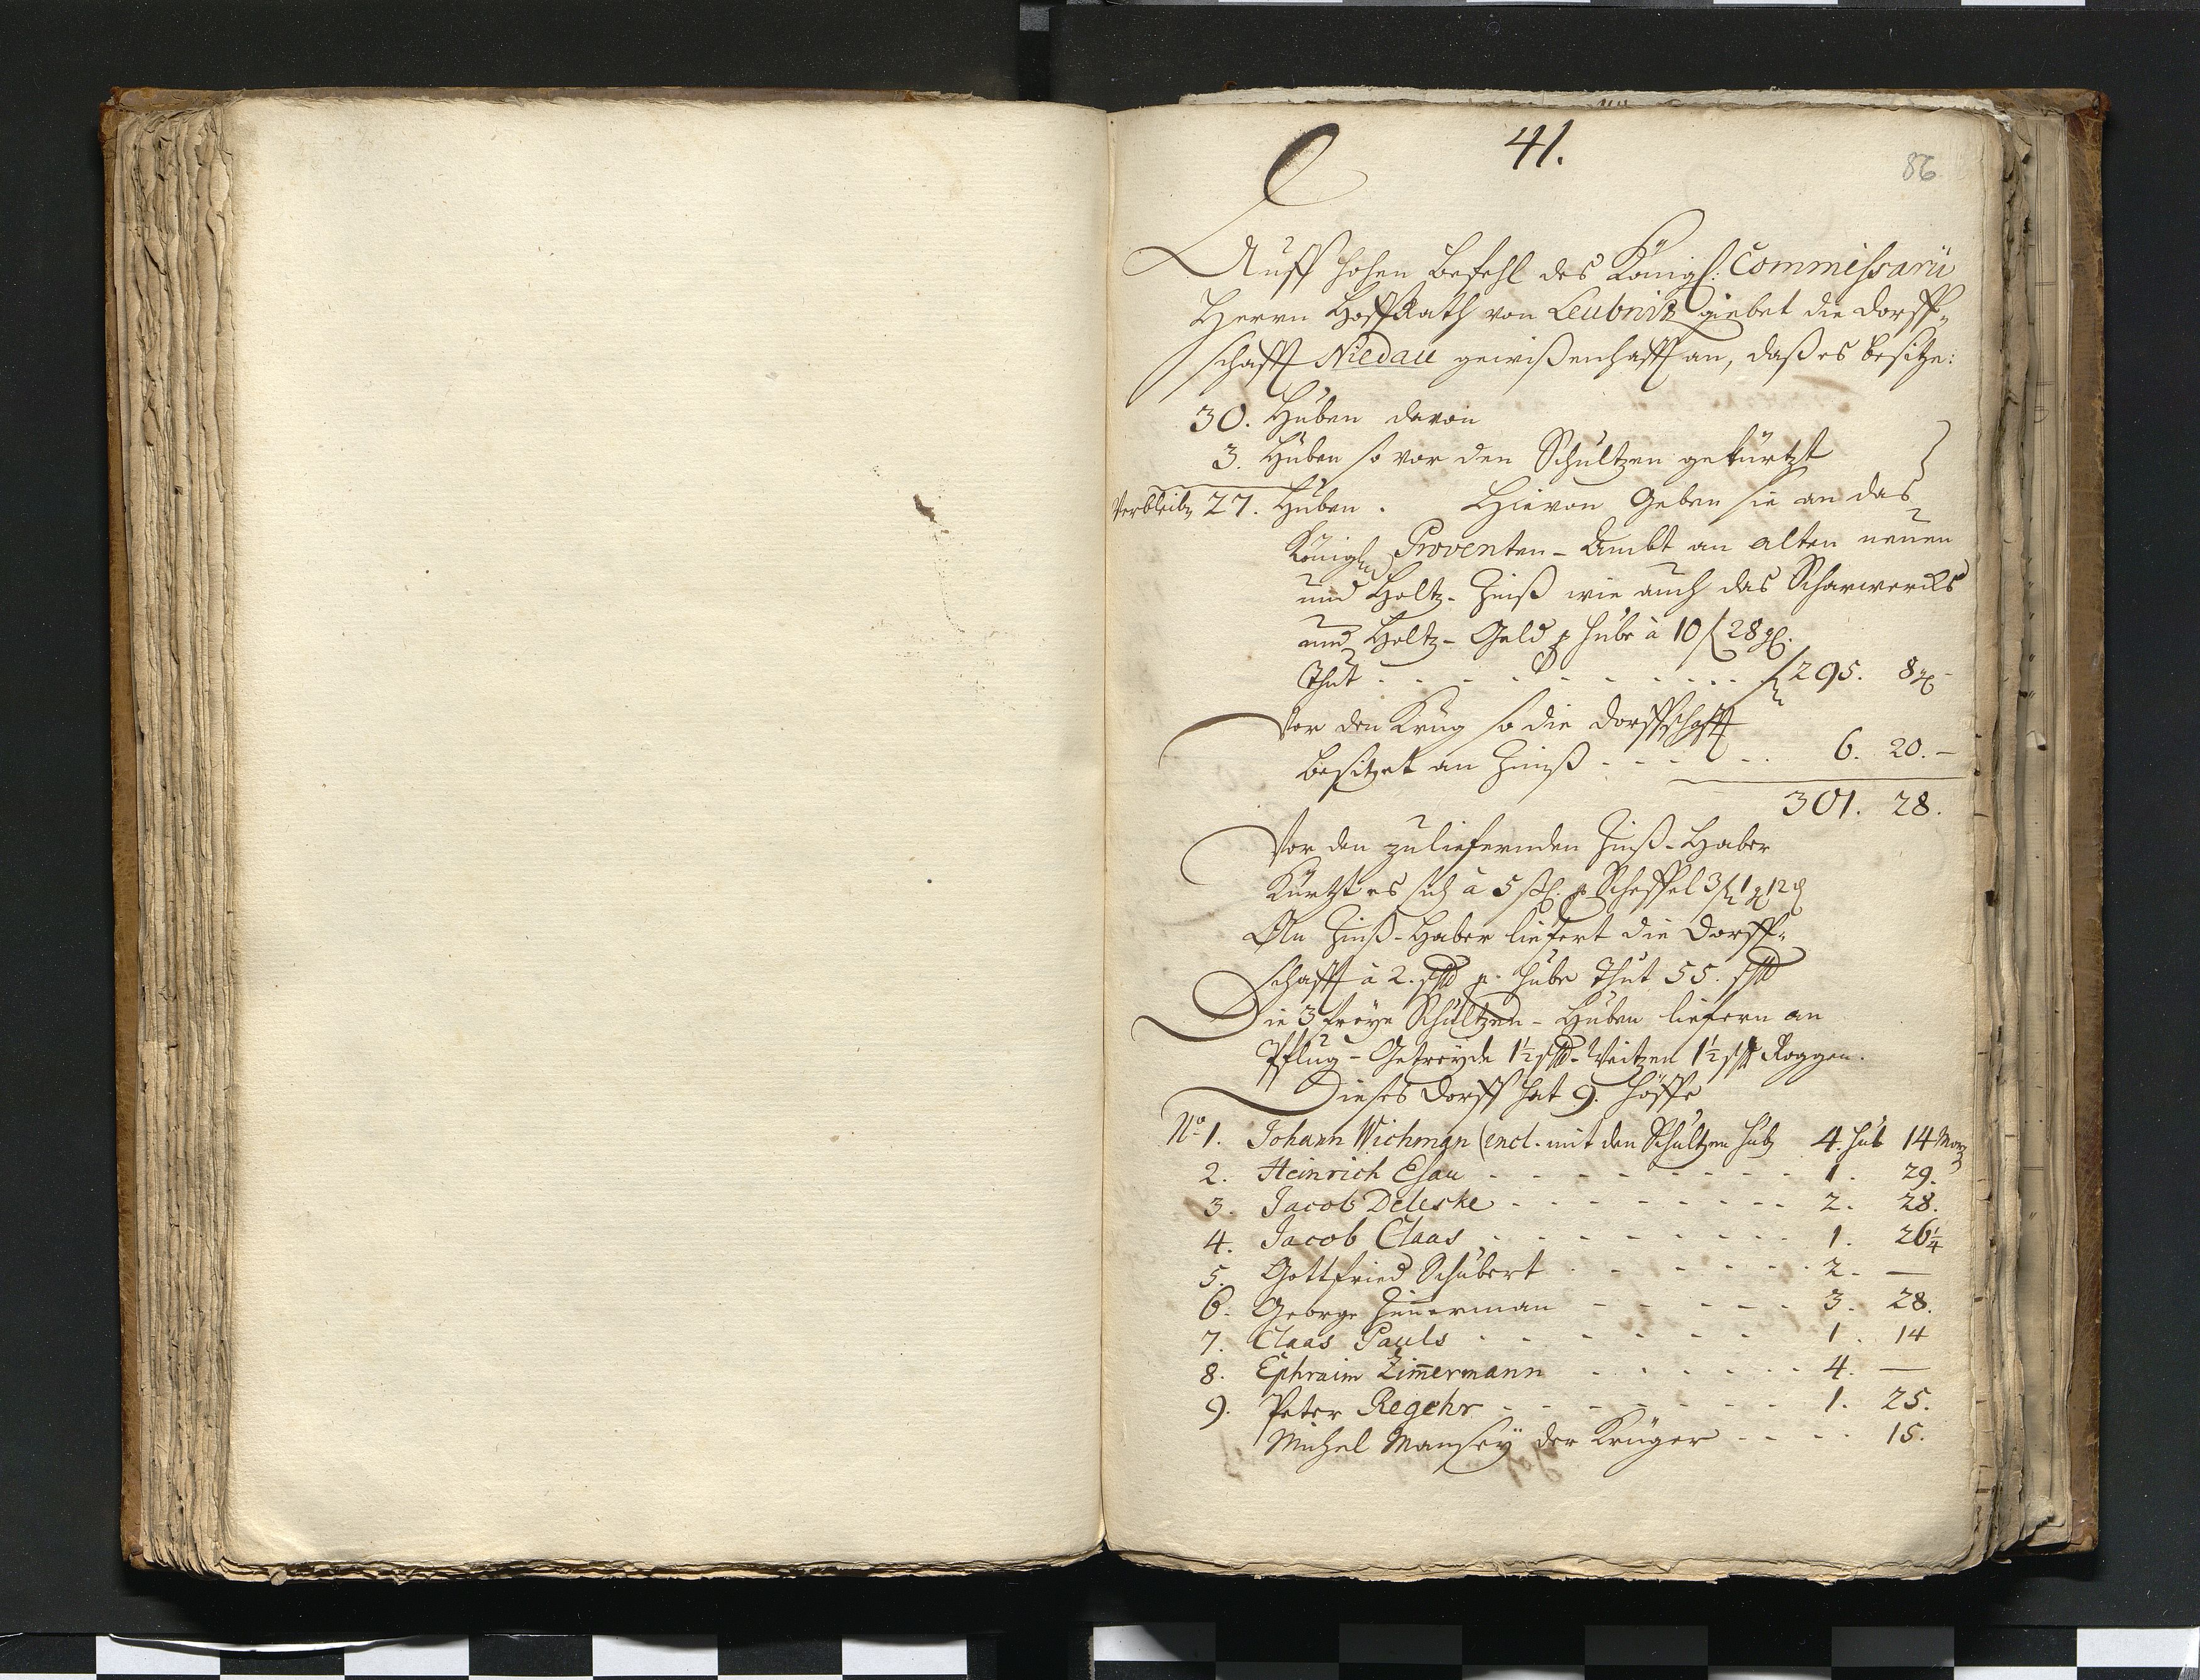 41.
86
Auff hohen Befehl des Königl: Commissarii
Herrn HoffRath von Leubnitz giebet die Dorff-
schafft Niedau gewißenhafft an, daß es besitze:
30. Huben davon
3. Huben so vor den Schultzen gekürtzt
Verbleiben 27. Huben. Hievon Geben sie an das
Königl. Proventen-Ambt an alten neuen
und Holtz-Zinß wie auch das Scharwercks
und Holtz-Geld p Hube à 10 f 28 gl.
Thut - - - - - - - f 295. 8 gl -
Vor den Krug so die Dorffschafft
besitzet an Zinß - - - - - 6. 20. -
301. 28.
Vor den zuliefernden Zinß-Haber
Kürtzt es sich à 5 ßl. p Scheffel 3 f 1 g 12 d
An Zinß-Haber liefert die Dorff-
schafft à 2. p. Hube Thut 55.
Die 3 freye Schultzen-Huben liefern an
Pflug-Getreyde 1½ Weitzen 1½ Roggen.
Dieses Dorff hat 9. Höffe
No 1. Johann Wichman (incl. mit den Schultzen Hub 4. Hub 14 Morg
2. Heinrich Esau - - - - - - - 1. 29.
3. Jacob Deleske - - - - - - - 2. 28.
4. Jacob Claas - - - - - - - 1. 26¼
5. Gottfried Schubert - - - - - - 2. —
6. George Zimerman - - - - - 3. 28.
7. Claas Pauls - - - - - - 1. 14
8. Ephraim Zimermann - - - - - - 4. —
9. Peter Regehr - - - - - - 1. 25.
Michel Mansey der Krüger - - - - 15.